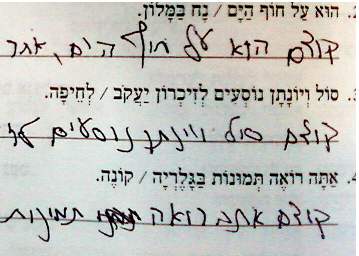 2. הוּא עַל חוֹף הַיָּם / נָח בַּמָּלוֹן.
קודם הוא על חוף הים, אחר
סוֹל וְיוֹנָתָן נוֹסְעִים לְזִיכְרוֹן יַעֲקֹב / לְחֵיפָה.
קודם סול ויונתן נוסעים
4. אַתָּה רוֹאֶה תְּמוּנוֹת בַּגָּלֶרְיָה / קוֹנֶה.
קודם אתה רואה תמונות